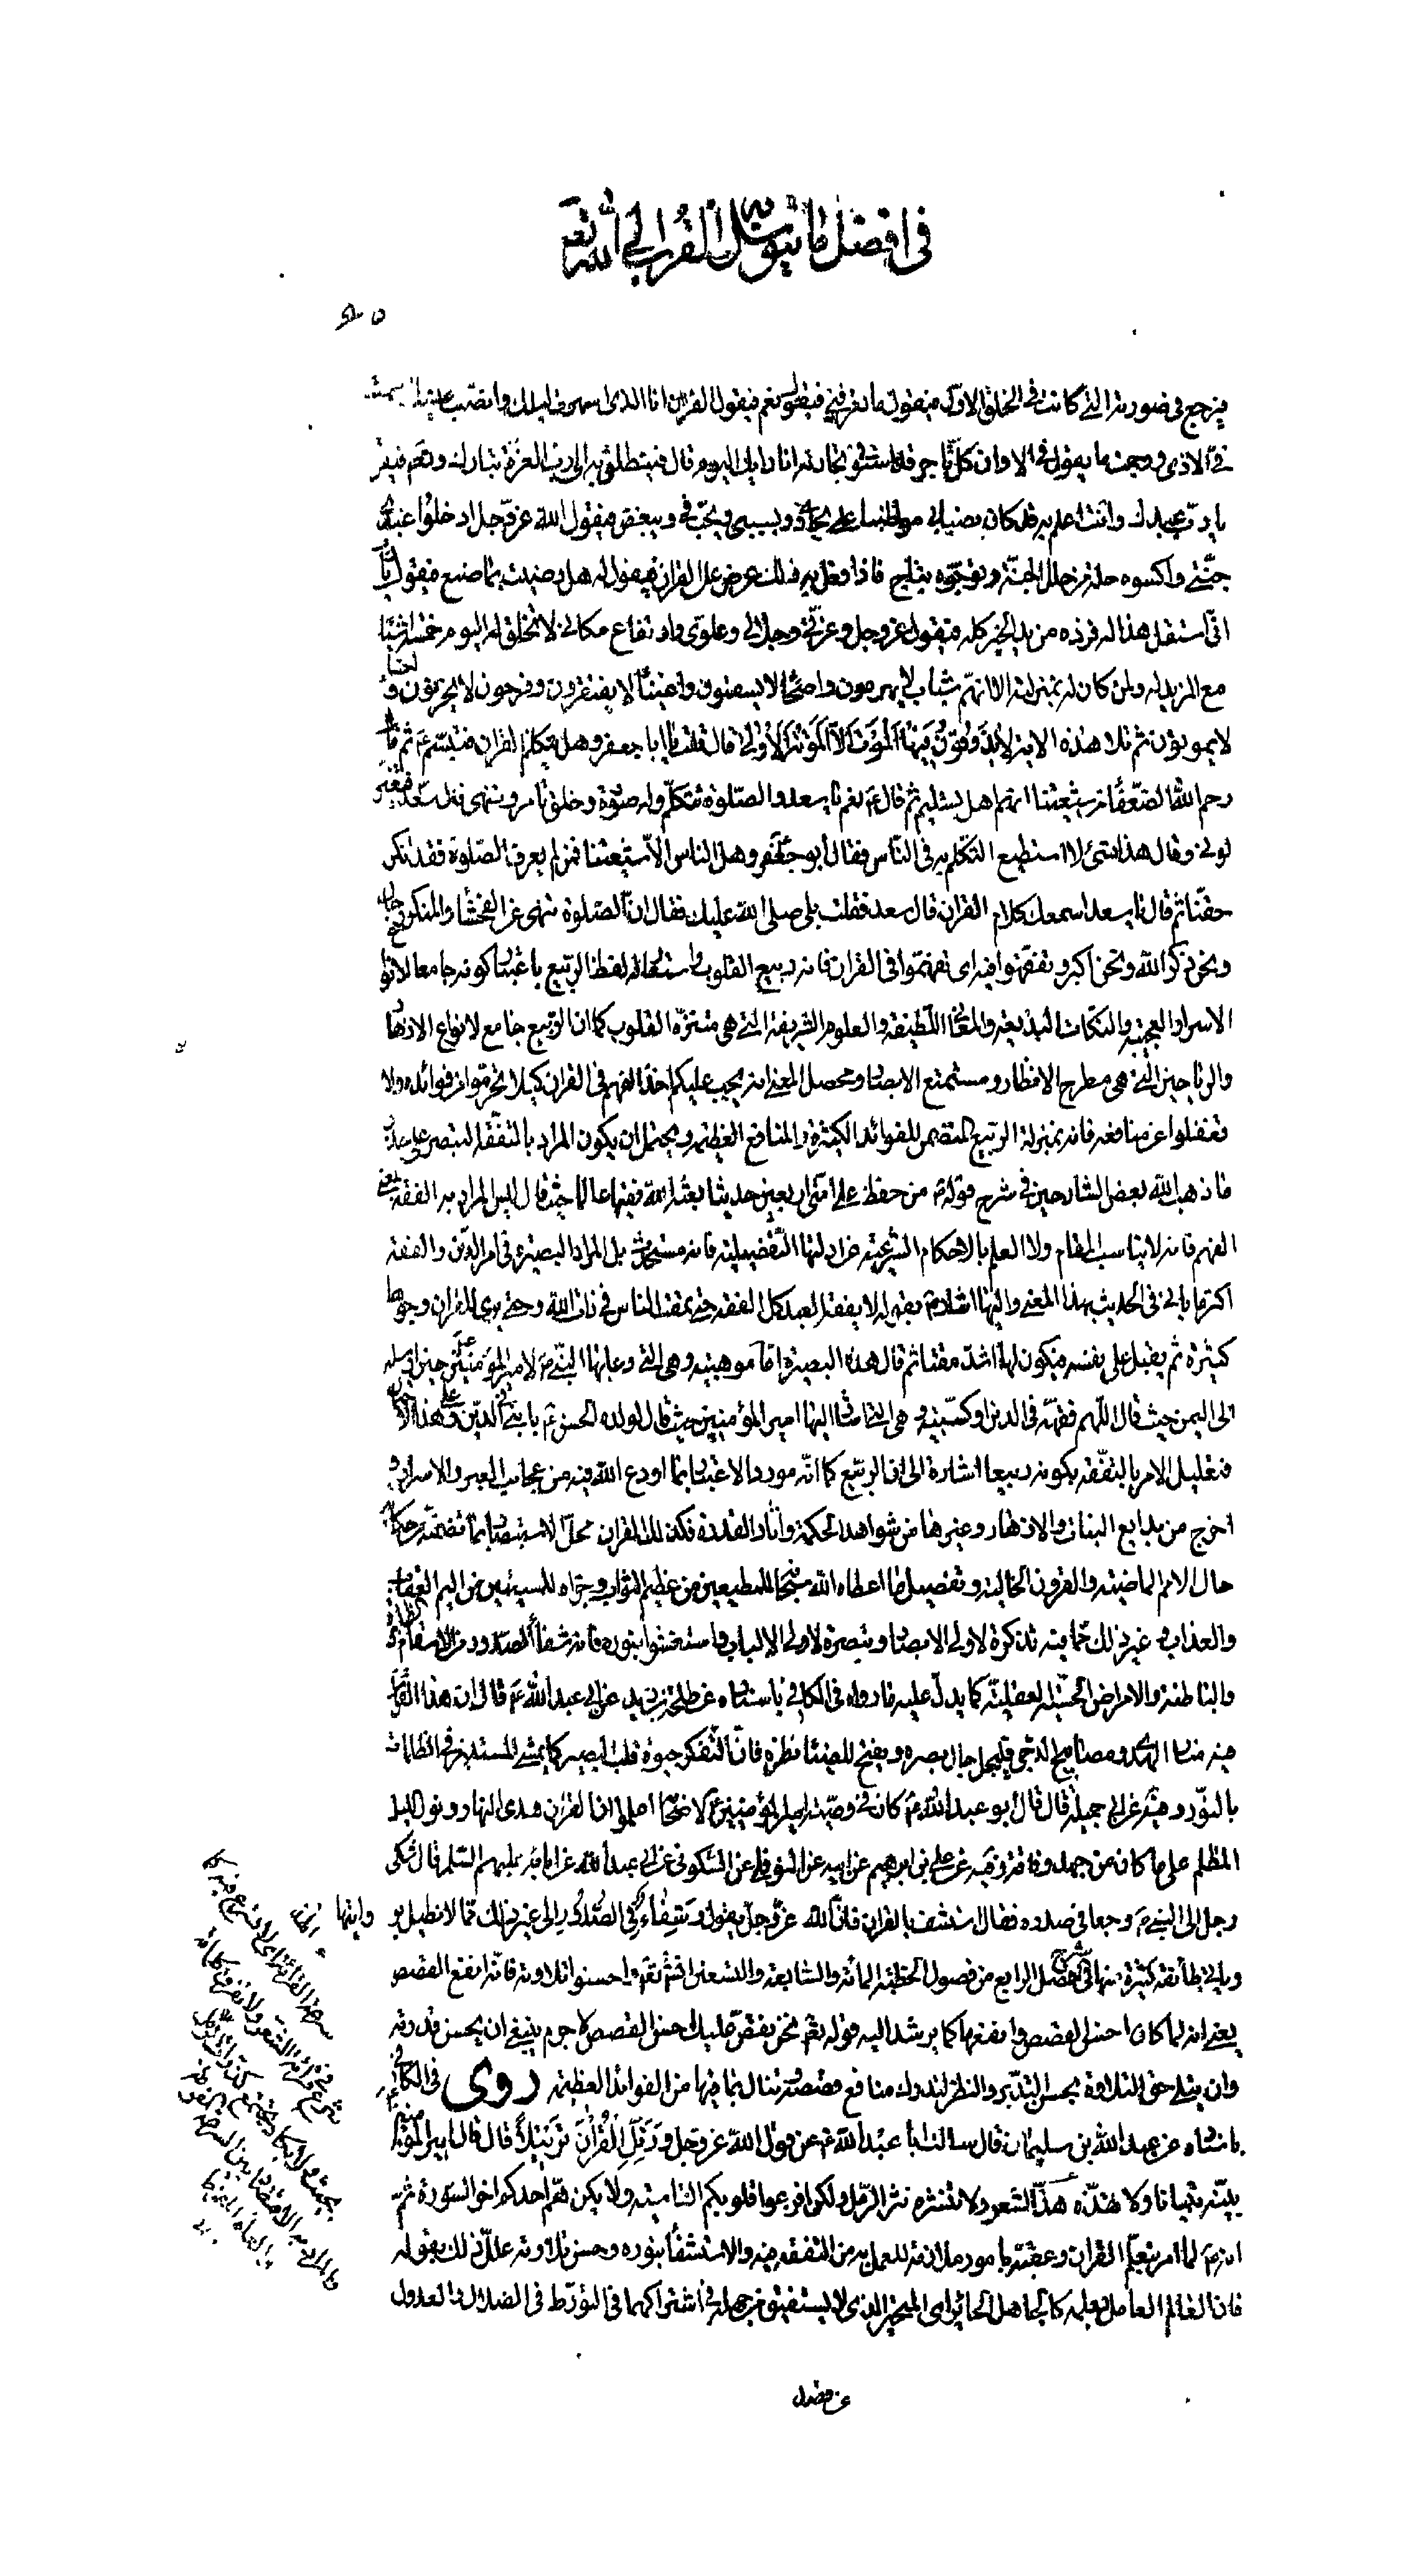 في افضل ما يتوسل به القرب الى الله تعالى
فيرجع في صورته التي كانت في الخلق الاول فيقول ما تعرفني فيقول نعم فيقول القران انا الذي اسهرت ليلك وانصبت عيشك سمعت
في الاذى ورجمت بالقول في الا وان كل تاجر قد استوفى تجارته وانا ورائك اليوم قال فينطلق به الى رب العزة تبارك وتعالى فيقول
يا رب عبدك وانت اعلم به قد كان نصبا بي مواظبا على يعادي بسببي ويحب في ويبغض فيقول الله عز وجل ادخلوا عبدي
جنتي واكسوه حلة من حلل الجنة وتوجوه بتاج فاذا فعل به ذلك عرض على القران فيقول له هل رضيت بما صنع فيقول يا رب
اني استقل هذا له فزده مزيد الخير كله فيقول عز وجل وعزتي وجلالي وعلوي وارتفاع مكاني لانحلن له اليوم خمسة اشياء
مع المزيد له ولمن كان له بمنزلته الا انهم شباب لا يهرمون واصحاء لا يسقمون واغنياء لا يفتقرون وفرحون لا يحزنون واحياء
لا يموتون ثم تلا هذه الاية لا يَذُوقُونَ فِيهَا الْمَوْتَ إِلَّا الْمَوْتَةَ الْأُولَى قال قلت يا ابا جعفر وهل يتكلم القران فتبسم ع ثم قال
رحم الله الضعفاء من شيعتنا انهم اهل تسليم ثم قال ع نعم يا سعد والصلوة تتكلم وله صورة وخلق تامر وتنهى قال سعد فتغير
لوني وقال هذا شيء لا استطيع التكلم به في الناس فقال ابو جعفر وهل الناس الا شيعتنا فمن لم يعرف الصلوة فقد انكر
حقنا ثم قال يا سعد اسمعك كلام القران قال سعد فقلت بلى صلى الله عليك فقال ان الصلوة تنهى عن الفحشاء والمنكر
ونحن ذكر الله ونحن اكبر وتفقهوا فيه اى تفهموا في القران فانه ربيع القلوب واستعارة لفظ الربيع باعتبار كونه جامعا لانواع
الاسرار العجيبة والنكات البديعة والمعاني اللطيفة والعلوم الشريفة التي هي متنزه القلوب كما ان الربيع جامع لانواع الازهار
والرياحين التي هي مطرح الانظار ومستمتع الابصار ومحصل المعنى انه يجب عليكم اخذ الفهم في القران كيلا تحرموا من فوائده ولا
تغفلوا عن منافعه فانه بمنزلة الربيع المتضمن للفوائد الكثيرة والمنافع العظيمة ويحتمل ان يكون المراد بالتفقه التبصر على حد
ما ذهب اليه بعض الشارحين في شرح قوله ص من حفظ على امتي اربعين حديثا بعثه الله فقيها عالما حيث قال ليس المراد به الفقه بمعنى
الفهم فانه لا يناسب المقام ولا العلم بالاحكام الشرعية عن ادلتها التفصيلية فانه مستحدث بل المراد البصيرة في امر الدين والفقه
اكثر ما ياتي في الحديث بهذا المعنى واليها اشار ص بقوله لا يفقه العبد كل الفقه حتى يمقت الناس في ذات الله وحتى يرى للقران وجوها
كثيرة ثم يقبل على نفسه فيكون لها اشد مقتا ثم قال هذه البصيرة اما موهبية وهي التي دعا بها النبي ص لامير المؤمنين ع حين ارسله
الى اليمن حيث قال اللهم فقهه في الدين او كسبية وهي التي اشار اليها امير المؤمنين حيث قال لولده الحسن ع يا بني تفقه في الدين وعلى هذا الاحتمال
فتعليل الامر بالتفقه بكونه ربيعا اشارة الى ان الربيع كما انه مورد الاعتبار بما اودع الله فيه من عجائب العبر والاسرار و
اخرج من بدايع النبات والازهار وغيرها من شواهد الحكمة واثار القدرة فكذلك القران محل الاستبصار بما تضمنه من حكاية
حال الامم الماضية والقرون الخالية وتفصيل ما اعطاه الله سبحانه للمطيعين من عظيم الثواب وجزاه للمسيئين من اليم العقاب
والعذاب وغير ذلك مما فيه تذكرة لاولى الابصار وتبصرة لاولى الالباب واستشفوا بنوره فانه شفاء الصدور من الاسقام الظاهرة
والباطنة والامراض الحسية والعقلية كما يدل عليه ما رواه في الكافي باسناده عن طلحة بن زيد عن ابي عبد الله ع قال ان هذا القران
فيه منار الهدى ومصابيح الدجى فليجل جال بصره ويفتح للضياء نظره فان التفكر حيوة قلب البصير كما يمشي المستنير في الظلمات
بالنور وفيه عن ابي جميلة قال قال ابو عبد الله ع كان في وصية امير المؤمنين ع لاصحابه اعلموا ان القران هدى النهار ونور الليل
المظلم على ما كان من جهد وفاقة وفيه عن علي بن ابراهيم عن ابيه عن النوفلي عن السكوني عن ابي عبد الله عن ابائه عليهم السلم قال شكى
رجل الى النبي ص وجعا في صدره فقال استشف بالقران فان الله عز وجل يقول وَشِفَاءٌ لِمَا فِي الصُّدُورِ الى غير ذلك مما لا نطيل بروايتها
وياتي طائفة كثيرة منها في الفصل الرابع من فصول الخطبة المائة والسابعة والتسعين انشاء الله تعالى واحسنوا تلاوته فانه انفع القصص
يعني انه لما كان احسن القصص وانفعها كما يرشد اليه قوله تعالى نحن نقص عليك احسن القصص لا جرم ينبغي ان يحسن تلاوته
وان يتلى حق التلاوة بحسن التدبر والنظر ليدرك منافع قصصه وتنال بما فيها من الفوائد العظيمة روى في الكافي
باسناده عن عبد الله بن سليمان قال سالت ابا عبد الله ع عن قول الله عز وجل وَرَتِّلِ الْقُرْآنَ تَرْتِيلًا قال قال امير المؤمنين
بينه تبيانا ولا تهذه هذ الشعر ولا تنثره نثر الرمل ولكن افزعوا قلوبكم القاسية ولا يكن هم احدكم اخر السورة ثم
انه ع لما امر بتعلم القران وعقبه بامور ملازمة للعمل به من التفقه فيه والاستشفاء بنوره وحسن تلاوته علل ذلك بقوله
فان العالم العامل بغير علمه كالجاهل الحائر اى المتحير الذي لا يستفيق من جهله في اشتراكهما في التورط في الضلال والعدول
عن قصد